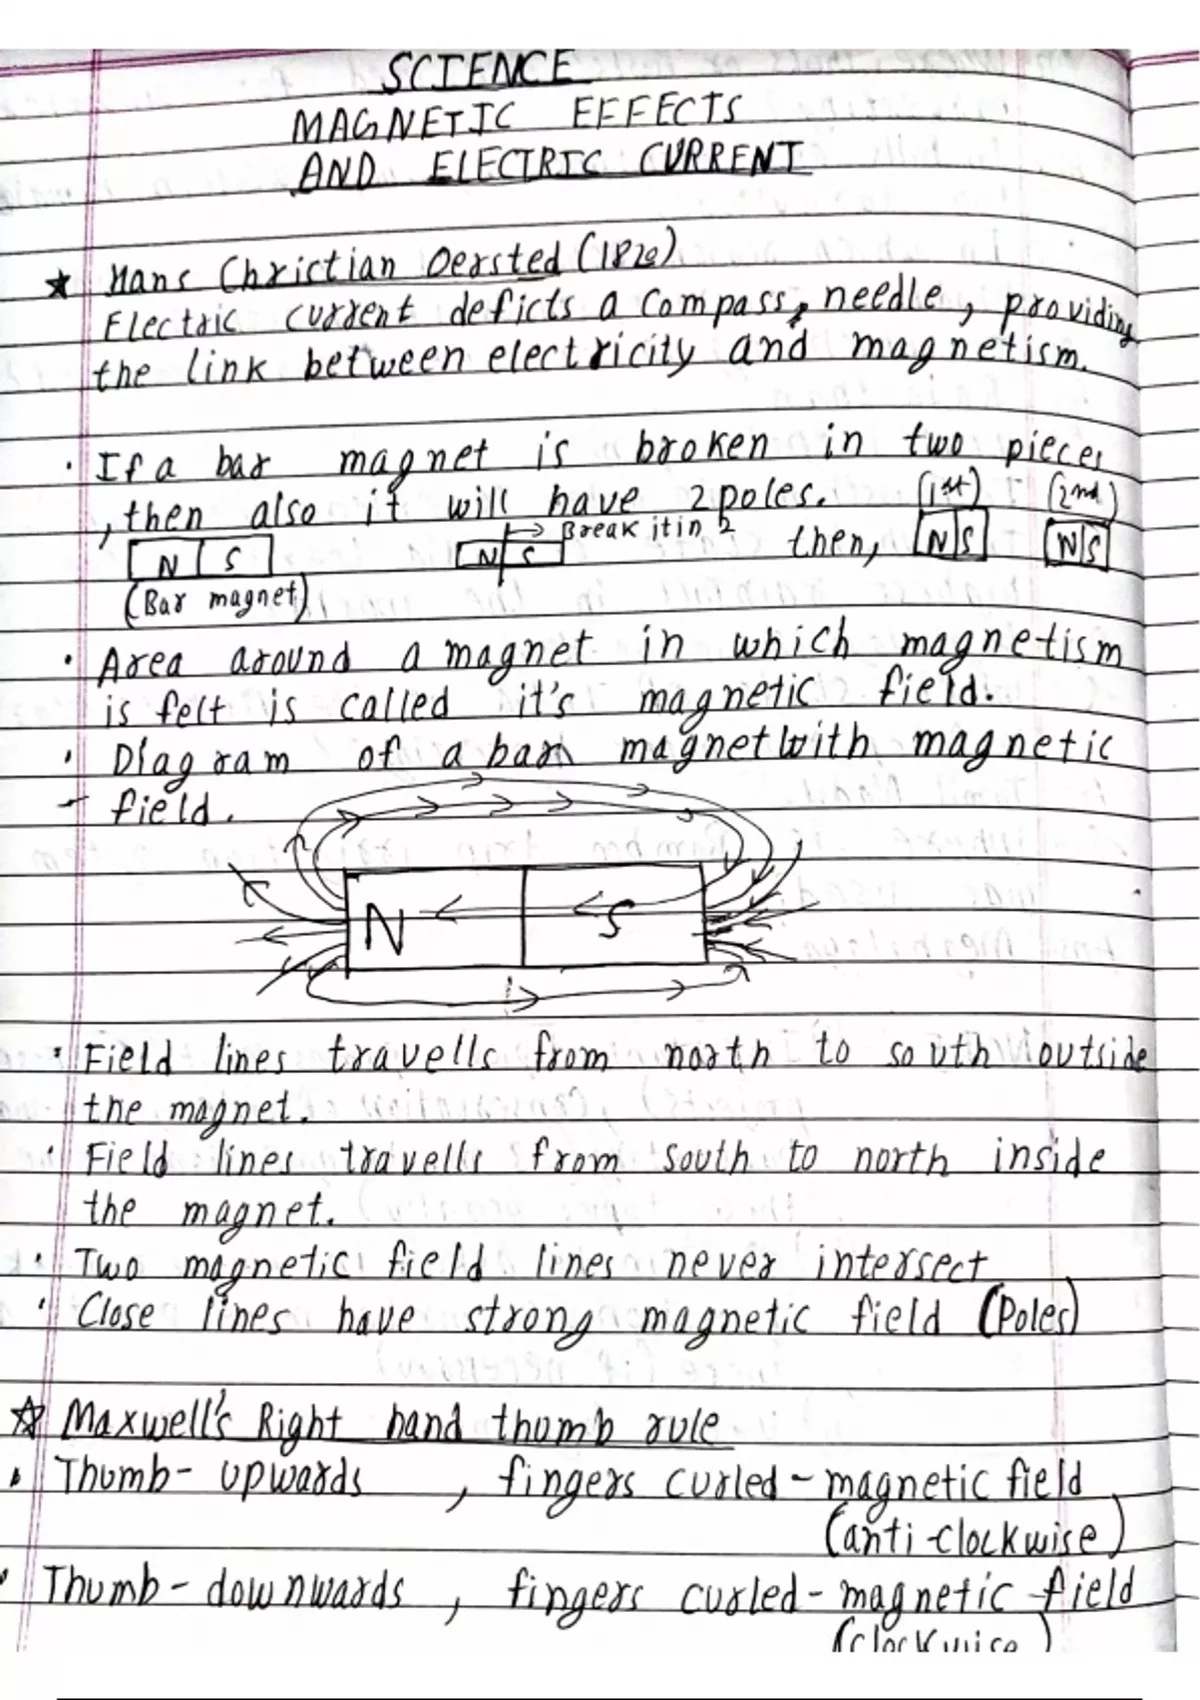 SCIENCE
MAGNETIC EFFECTS
AND ELECTRIC CURRENT
★ Hans Chrictian Oersted (1820)
Electric current deficts a compass, needle, providing
the link between electricity and magnetism.
· If a bar magnet is broken in two pieces
, then also it will have 2 poles. (1st) (2nd)
→ Break it in 2
N S N S then, N S N S
(Bar magnet)
· Area around a magnet in which magnetism
is felt is called it's magnetic field.
· Diagram of a bar magnet with magnetic
field.
N S
· Field lines travells from north to south outside
the magnet.
· Field lines travells from south to north inside
the magnet.
· Two magnetic field lines never intersect
· Close lines have strong magnetic field (Poles)
☆ Maxwell's Right hand thumb rule
· Thumb - upwards , fingers curled - magnetic field
(anti-clockwise)
· Thumb - downwards , fingers curled - magnetic field
(clockwise)